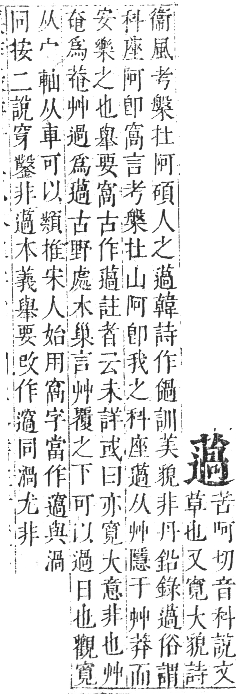 薖苦呵切音科說文
草也又寬大貌詩
衞風考槃在阿碩人之薖韓詩作訓美貌非丹鉛錄薖俗謂
科座阿卽窩言考槃在山阿卽我之科座薖从艸隱于艸莽而
安樂之也舉要窩古作薖註者云未詳或曰亦寬大意非也艸
奄爲菴艸過爲薖古野處木巢言艸覆之下可以過日也觀寬
从宀軸从車可以類推宋人始用窩字當作薖與渦
同按二說穿鑿非薖本義舉要改作薖同渦尤非